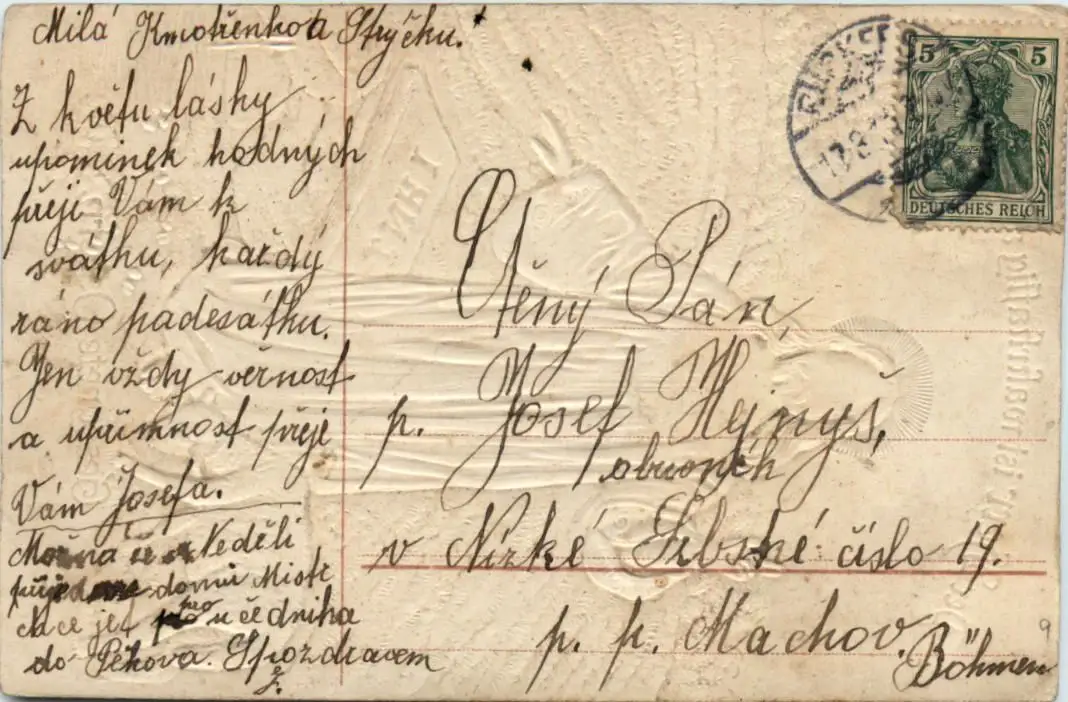 Milá Kmotřenko a Strýčku.
Z květu lásky
upomínek hodných
přeji Vám k
svátku, každý
ráno padesátku.
Jen vždy věrnost
a upřímnost přeje
Vám Josefa.
Možná že v Neděli
domů Mistr
chce jet pro učedníka
do Pěkova. S pozdravem
J.
Ctěný Pán,
p. Josef Hejnyš,
obuvník
v Nízké Srbské číslo 19.
p. p. Machov.
Böhmen
5 5
DEUTSCHES REICH